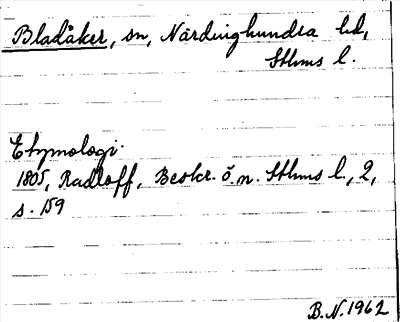 Bladåker, sn, Närdinghundra hd,
Sthms l.
Etymologi.
1805, Radloff, Beskr. ö. n. Sthms l., 2,
s. 159
B.N. 1962